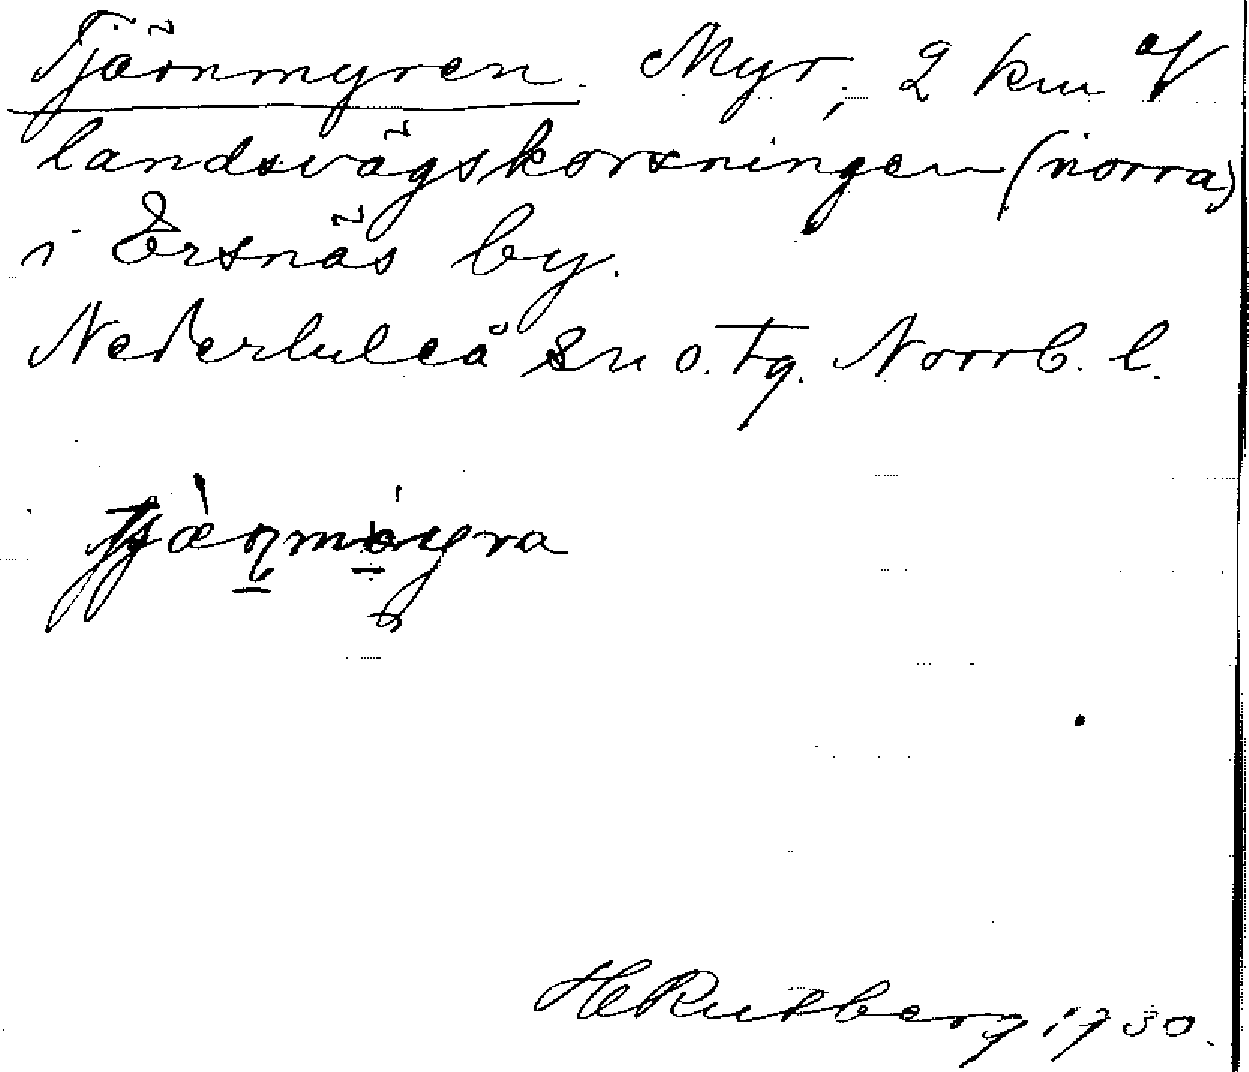 Tjärnmyren. Myr, 2 km
landsvägskorsningen (norra)
i Ersnäs by.
Nederluleå sn o. tg. Norrb. l.
HERutberg 1930.